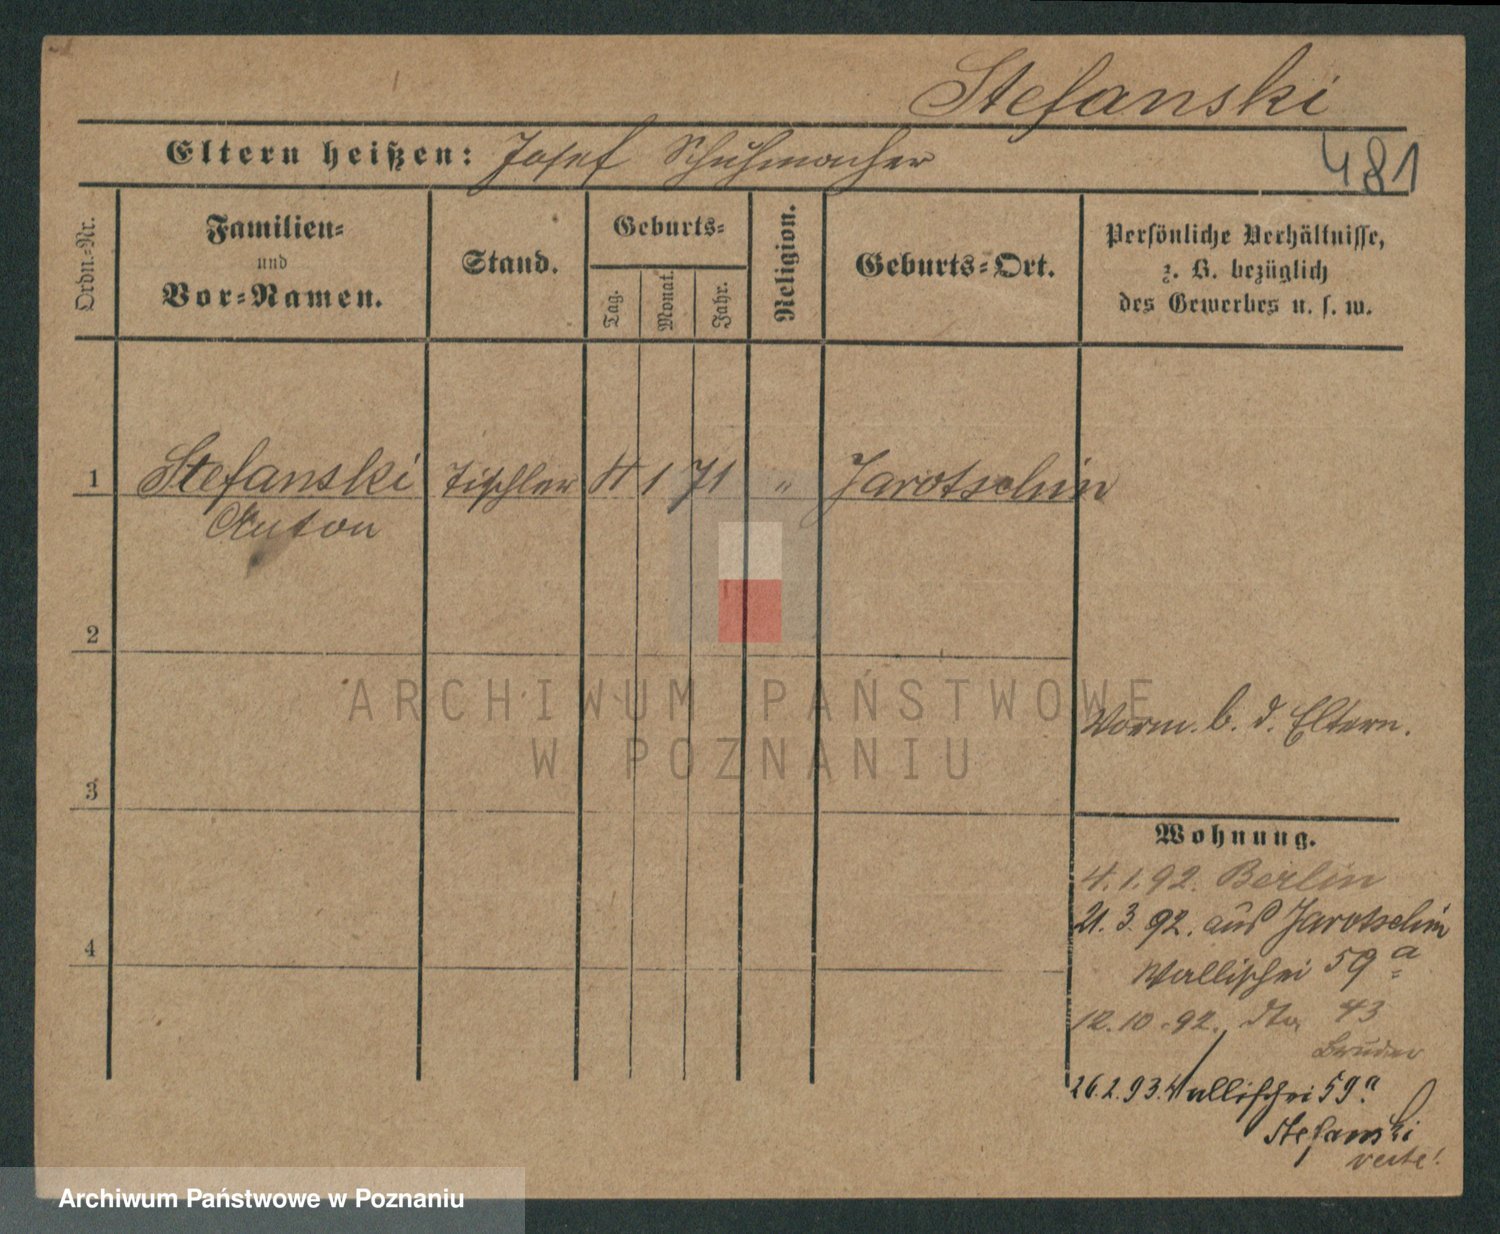 Stefanski
Eltern heißen: Josef Schuhmacher
481
Ordn.-Nr.
Familien-
und
Vor-Namen.
Stand.
Geburts-
Tag.
Monat.
Jahr.
Religion.
Geburts-Ort.
Persönliche Verhältnisse,
z. B. bezüglich
des Gewerbes u. s. w.
1 Stefanski Tischler 4 1 71 " Jarotschin
Anton
2
ARCHIWUM PAŃSTWOWE
W POZNANIU
Vorm. b. d. Eltern.
3
Wohnung.
4.1.92. Berlin
21.3.92. aus Jarotschin
4
Wallischei 59a
12.10.92. dto 43
Bruder
26.2.93. Wallischei 59a
Stefanski
verte!
Archiwum Państwowe w Poznaniu